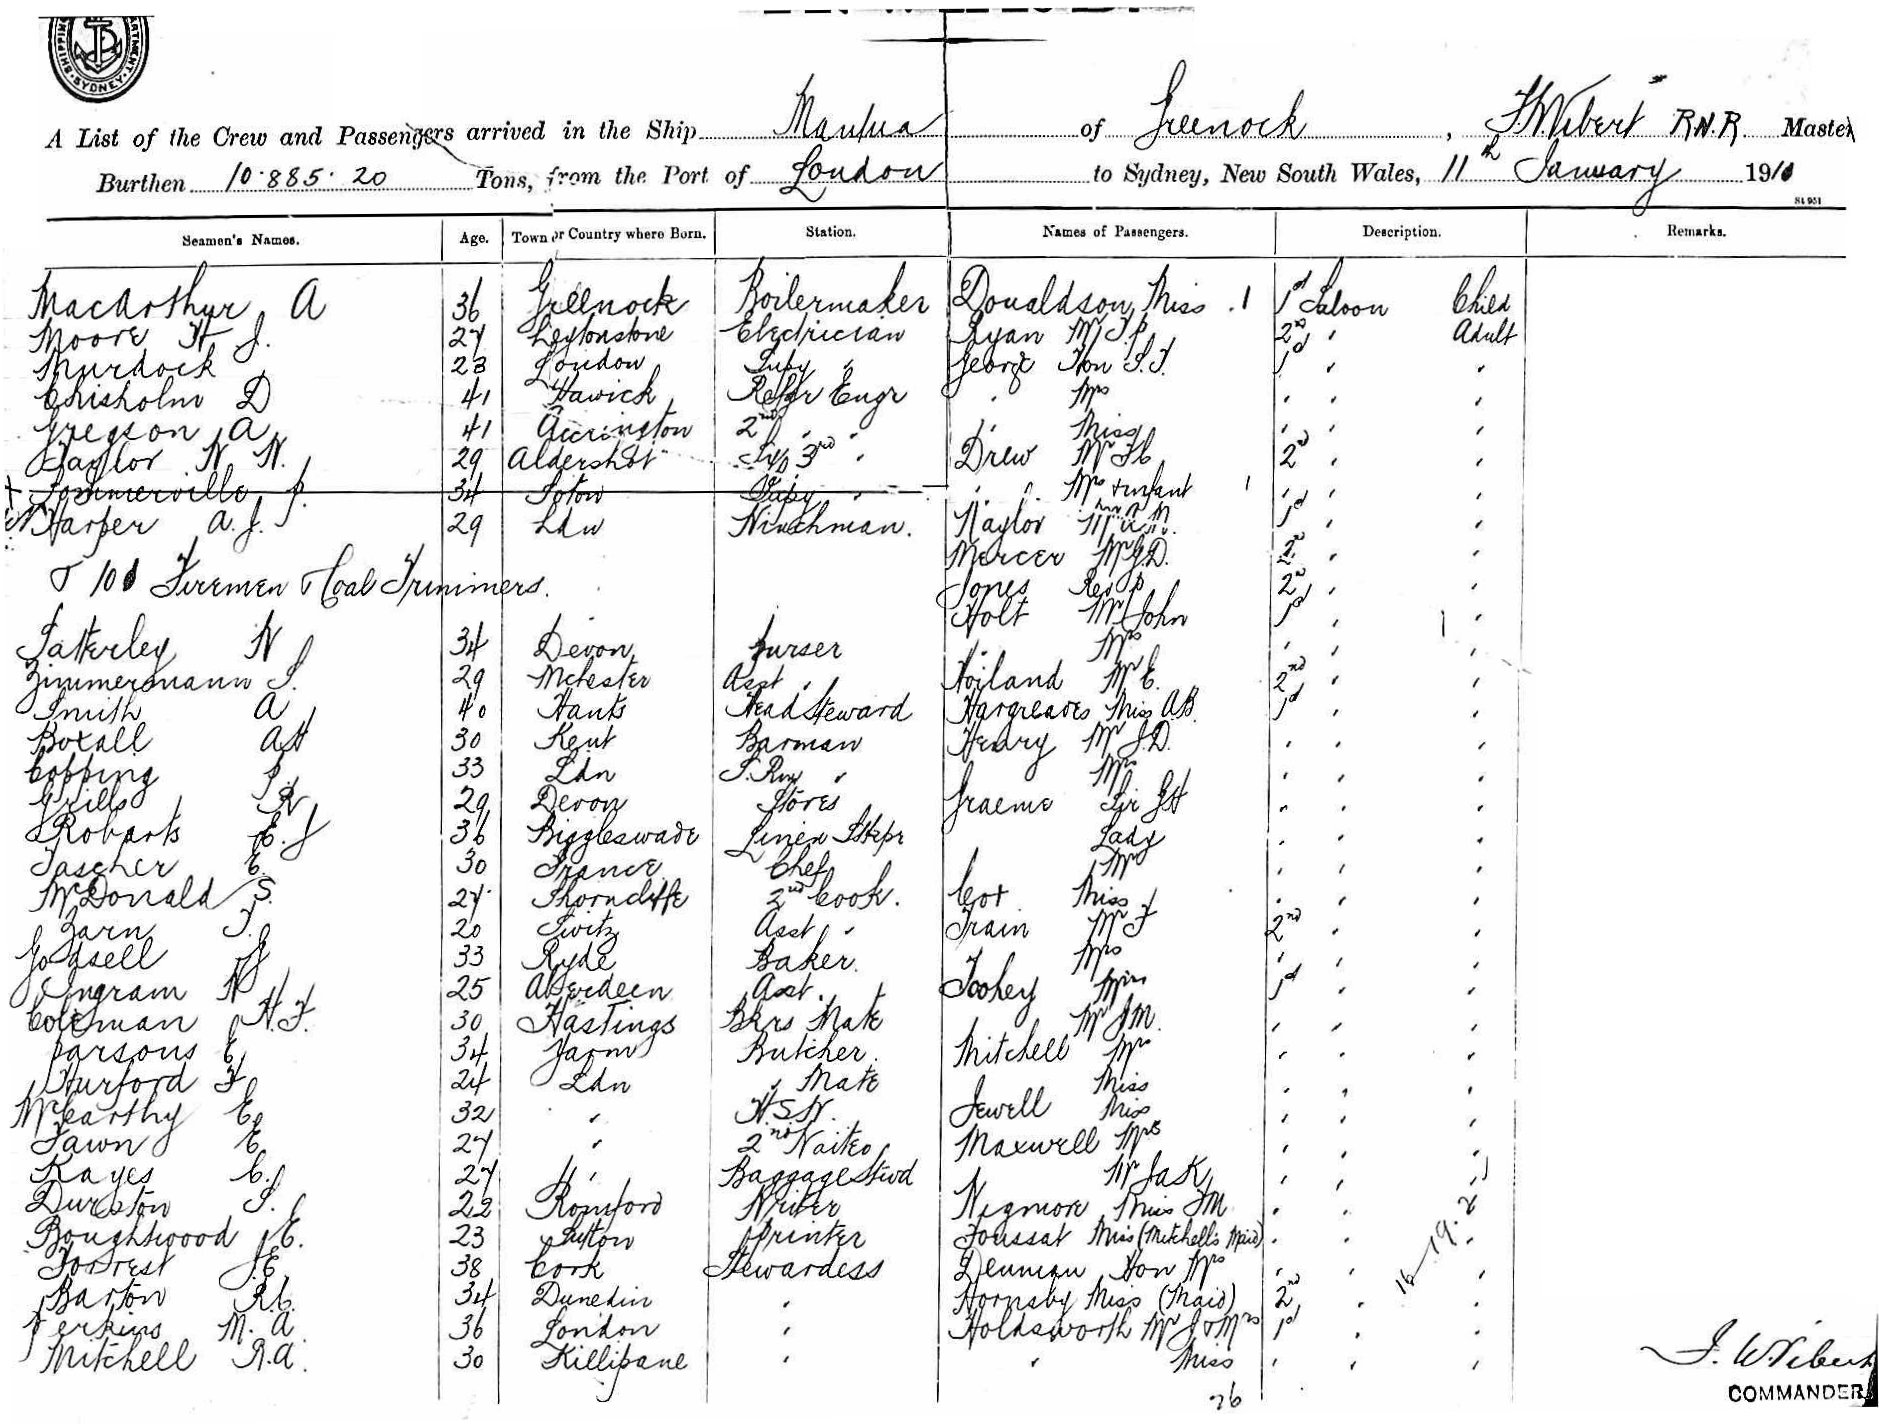 SYDNEY
A List of the Crew and Passengers arrived in the Ship Mantua of Greenock, F W Vibert R.N.R. Master
Burthen 10.885.20 Tons, from the Port of London to Sydney, New South Wales, 11th January 1910
St 951
Seamen's Names. Age. Town or Country where Born. Station. Names of Passengers. Description. Remarks.
MacArthur A 36 Greenock Boilermaker Donaldson Miss . 1 1st Saloon Child
Moore H J. 27 Leytonstone Electrician Ryan Mr J.P. 2nd " Adult
Murdock 23 London Supy " George Hon S.T. 1st " "
Chisholm D 41 Hawick Refgr Engr " Mrs " " "
Gregson A 41 Accrington 2nd " " " Miss " " "
Taylor W H. 29 Aldershot 3rd " Drew Mr 2nd " "
Sommerville P. 34 Soton Supy " " " Mrs + infant 1 " " "
Harper A. J. 29 Ldn Winchman. Naylor 1st " "
Mercer Mr G.D. 2nd " "
& 101 Firemen & Coal Trimmers.
Jones Rev P 2nd " "
Holt Mr John 1st " "
Satterley W 34 Devon Purser " Mrs " " "
Zimmermann S. 29 Mchester Asst " Hoiland Mr E. 2nd " "
Smith A 40 Hants Head Steward Hargreaves Miss A.B. 1st " "
Boxall AH 30 Kent Barman Henry Mr J.D. " " "
Copping P. 33 Ldn S. Rm " Mrs " " "
Grills W 29 Devon Stores Graeme Sir GH " " "
Robarts E. J 36 Biggleswade Linen Stkpr Lady " " "
Tascher E. 30 France Chef Mr " " "
McDonald S. 27 Thorncliffe 2nd Cook. Cox Miss " " "
Zarn J. 20 Switz Asst " Train Mr F 2nd " "
Godsell J 33 Ryde Baker. Mrs " " "
Ingram W 25 Aberdeen Asst. " Toohey Miss 1st " "
Coleman H. F. 30 Hastings Bkrs Mate Mr J.M. " " "
Parsons E 34 Yarm Butcher. Mitchell Mrs " " "
Hurford F 24 Ldn " Mate Miss " " "
McCarthy E 32 " H.S.W. Jewell Miss " " "
Fawn E 27 " 2nd Waiter Maxwell Mrs " " "
Kayes C. 27 " Baggage Stwd Mr Jas K " " "
Durston S. 22 Romford Writer Wigmore Miss J M " " "
Boughtwood E. 23 Sutton Printer Toussat Miss (Mitchell's Maid) " " "
Forrest E 38 Cork Stewardess Denman Hon Mrs " " "
Barton R.C. 34 Dunedin " Hornsby Miss (Maid) 2nd " "
Perkins M. A 36 London " Holdsworth Mr J & Mrs 1st " "
Mitchell R.A. 30 Killipane " " Miss " " "
16-19.2
26
F. W. Vibert
COMMANDER